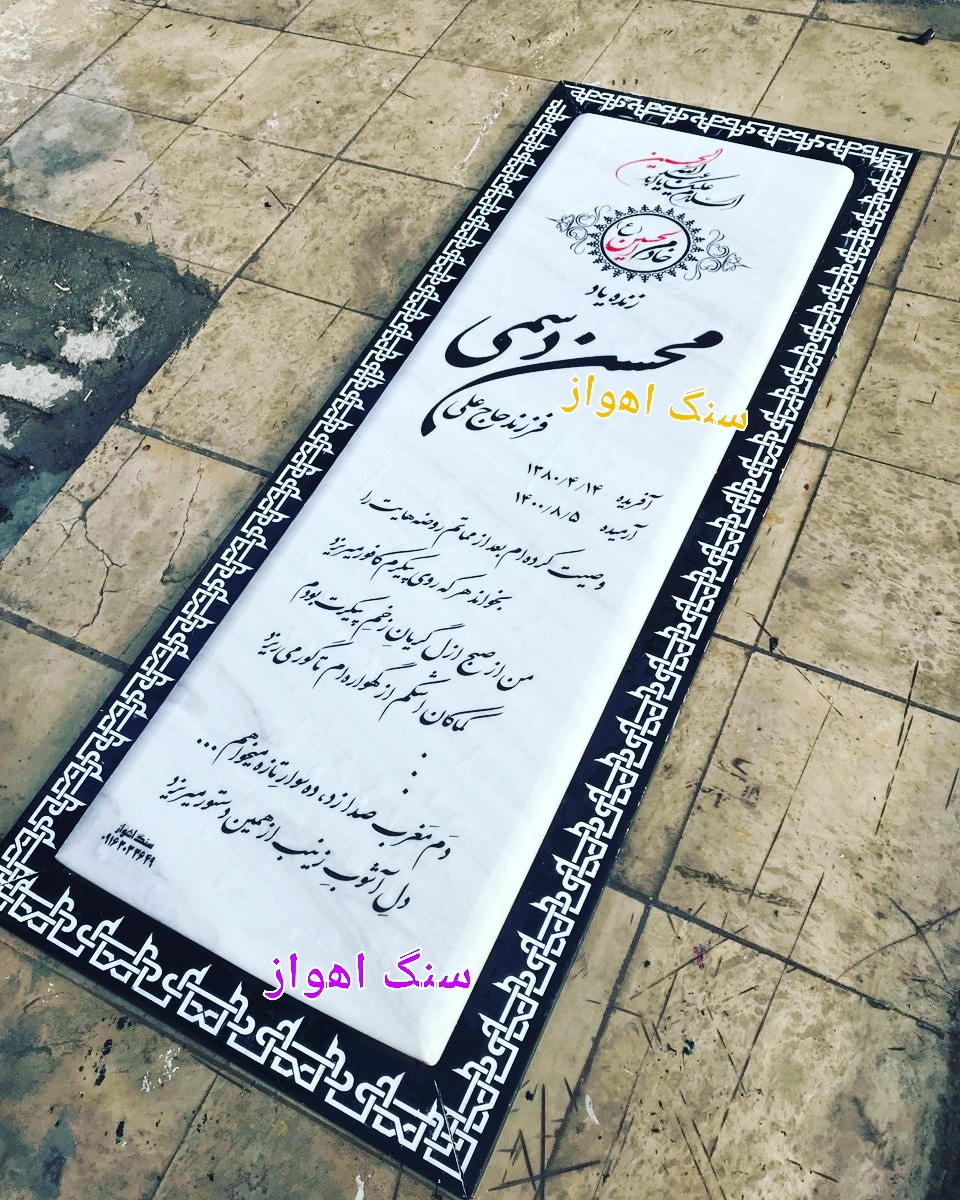 السلام علیک یا ابا عبدالله الحسین
خادم الحسین (ع)
زنده یاد
محسن دسمی
فرزند حاج علی
سنگ اهواز
آفریده ۱۳۸۰/۴/۱۴
آرمیده ۱۴۰۰/۸/۵
وصیت کرده ام بعد از مماتم روضه هایت را
بخواند هر که روی پیکرم کافور میریزد
من از صبح ازل گریانِ زخمِ پیکرت بودم
کماکان اشکم از گهواره ام تا گور می ریزد
دَم مَغرب صدا زد، ده سوارِ تازه میخواهم ...
دلِ آشوبِ زینب از همین دستور میریزد
سنگ اهواز
۰۹۱۶۳۰۳۳۶۴۹
سنگ اهواز